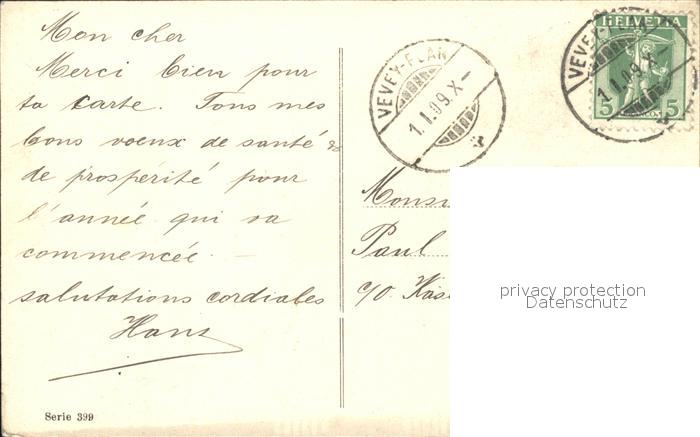 Mon cher
Merci bien pour
ta carte. Tous mes
bons voeux de santé &
de prospérité pour
l'année qui va
commencée. —
salutations cordiales
Hans
Serie 399
VEVEY-PLAN
1.I.09.X—
VEVEY-PLAN
1.I.09.X—
HELVETIA
5 5
Monsi
Paul
c/o. Käse
privacy protection
Datenschutz